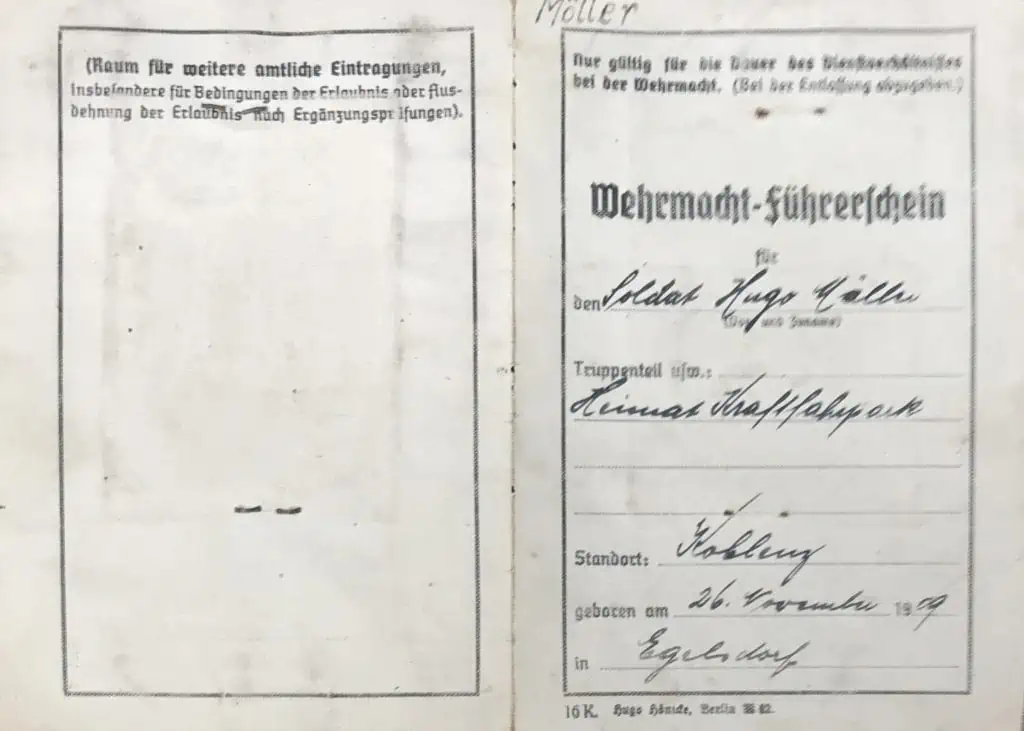 (Raum für weitere amtliche Eintragungen,
insbesondere für Bedingungen der Erlaubnis oder Aus-
dehnung der Erlaubnis nach Ergänzungsprüfungen).
Möller
Nur gültig für die Dauer des Dienstverhältnisses
bei der Wehrmacht. (Bei der Entlassung abzugeben.)
Wehrmacht-Führerschein
für
den Soldat Hugo Möller
(Vor- und Zuname)
Truppenteil usw.:
Heimat Kraftfahrpark
Standort: Koblenz
geboren am 26. November 1909
in Egelsdorf
16 K. Hugo Hönicke, Berlin 42.